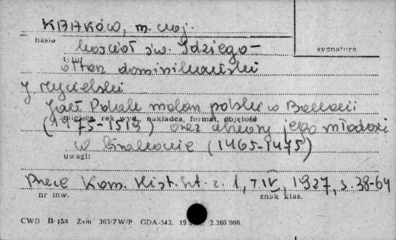 KRAKÓW, m. woj.
hasło
kościół św. Idziego -
sygnatura
ołtarz dominikański
J. Myciński
Jan Polak malarz polski w Bawarii
miejsce, rok wyd., nakładca, format, objętość
(1475-1519) oraz utwory jego młodości
w Krakowie (1465-1475)
uwagi:
Prace Kom. Hist. Szt. z. 1, T. IV, 1927, s. 38-64
nr inw.
znak klas.
CWD B-15a Zam 363/ZW/P. GDA-543. 19 2.260 000.